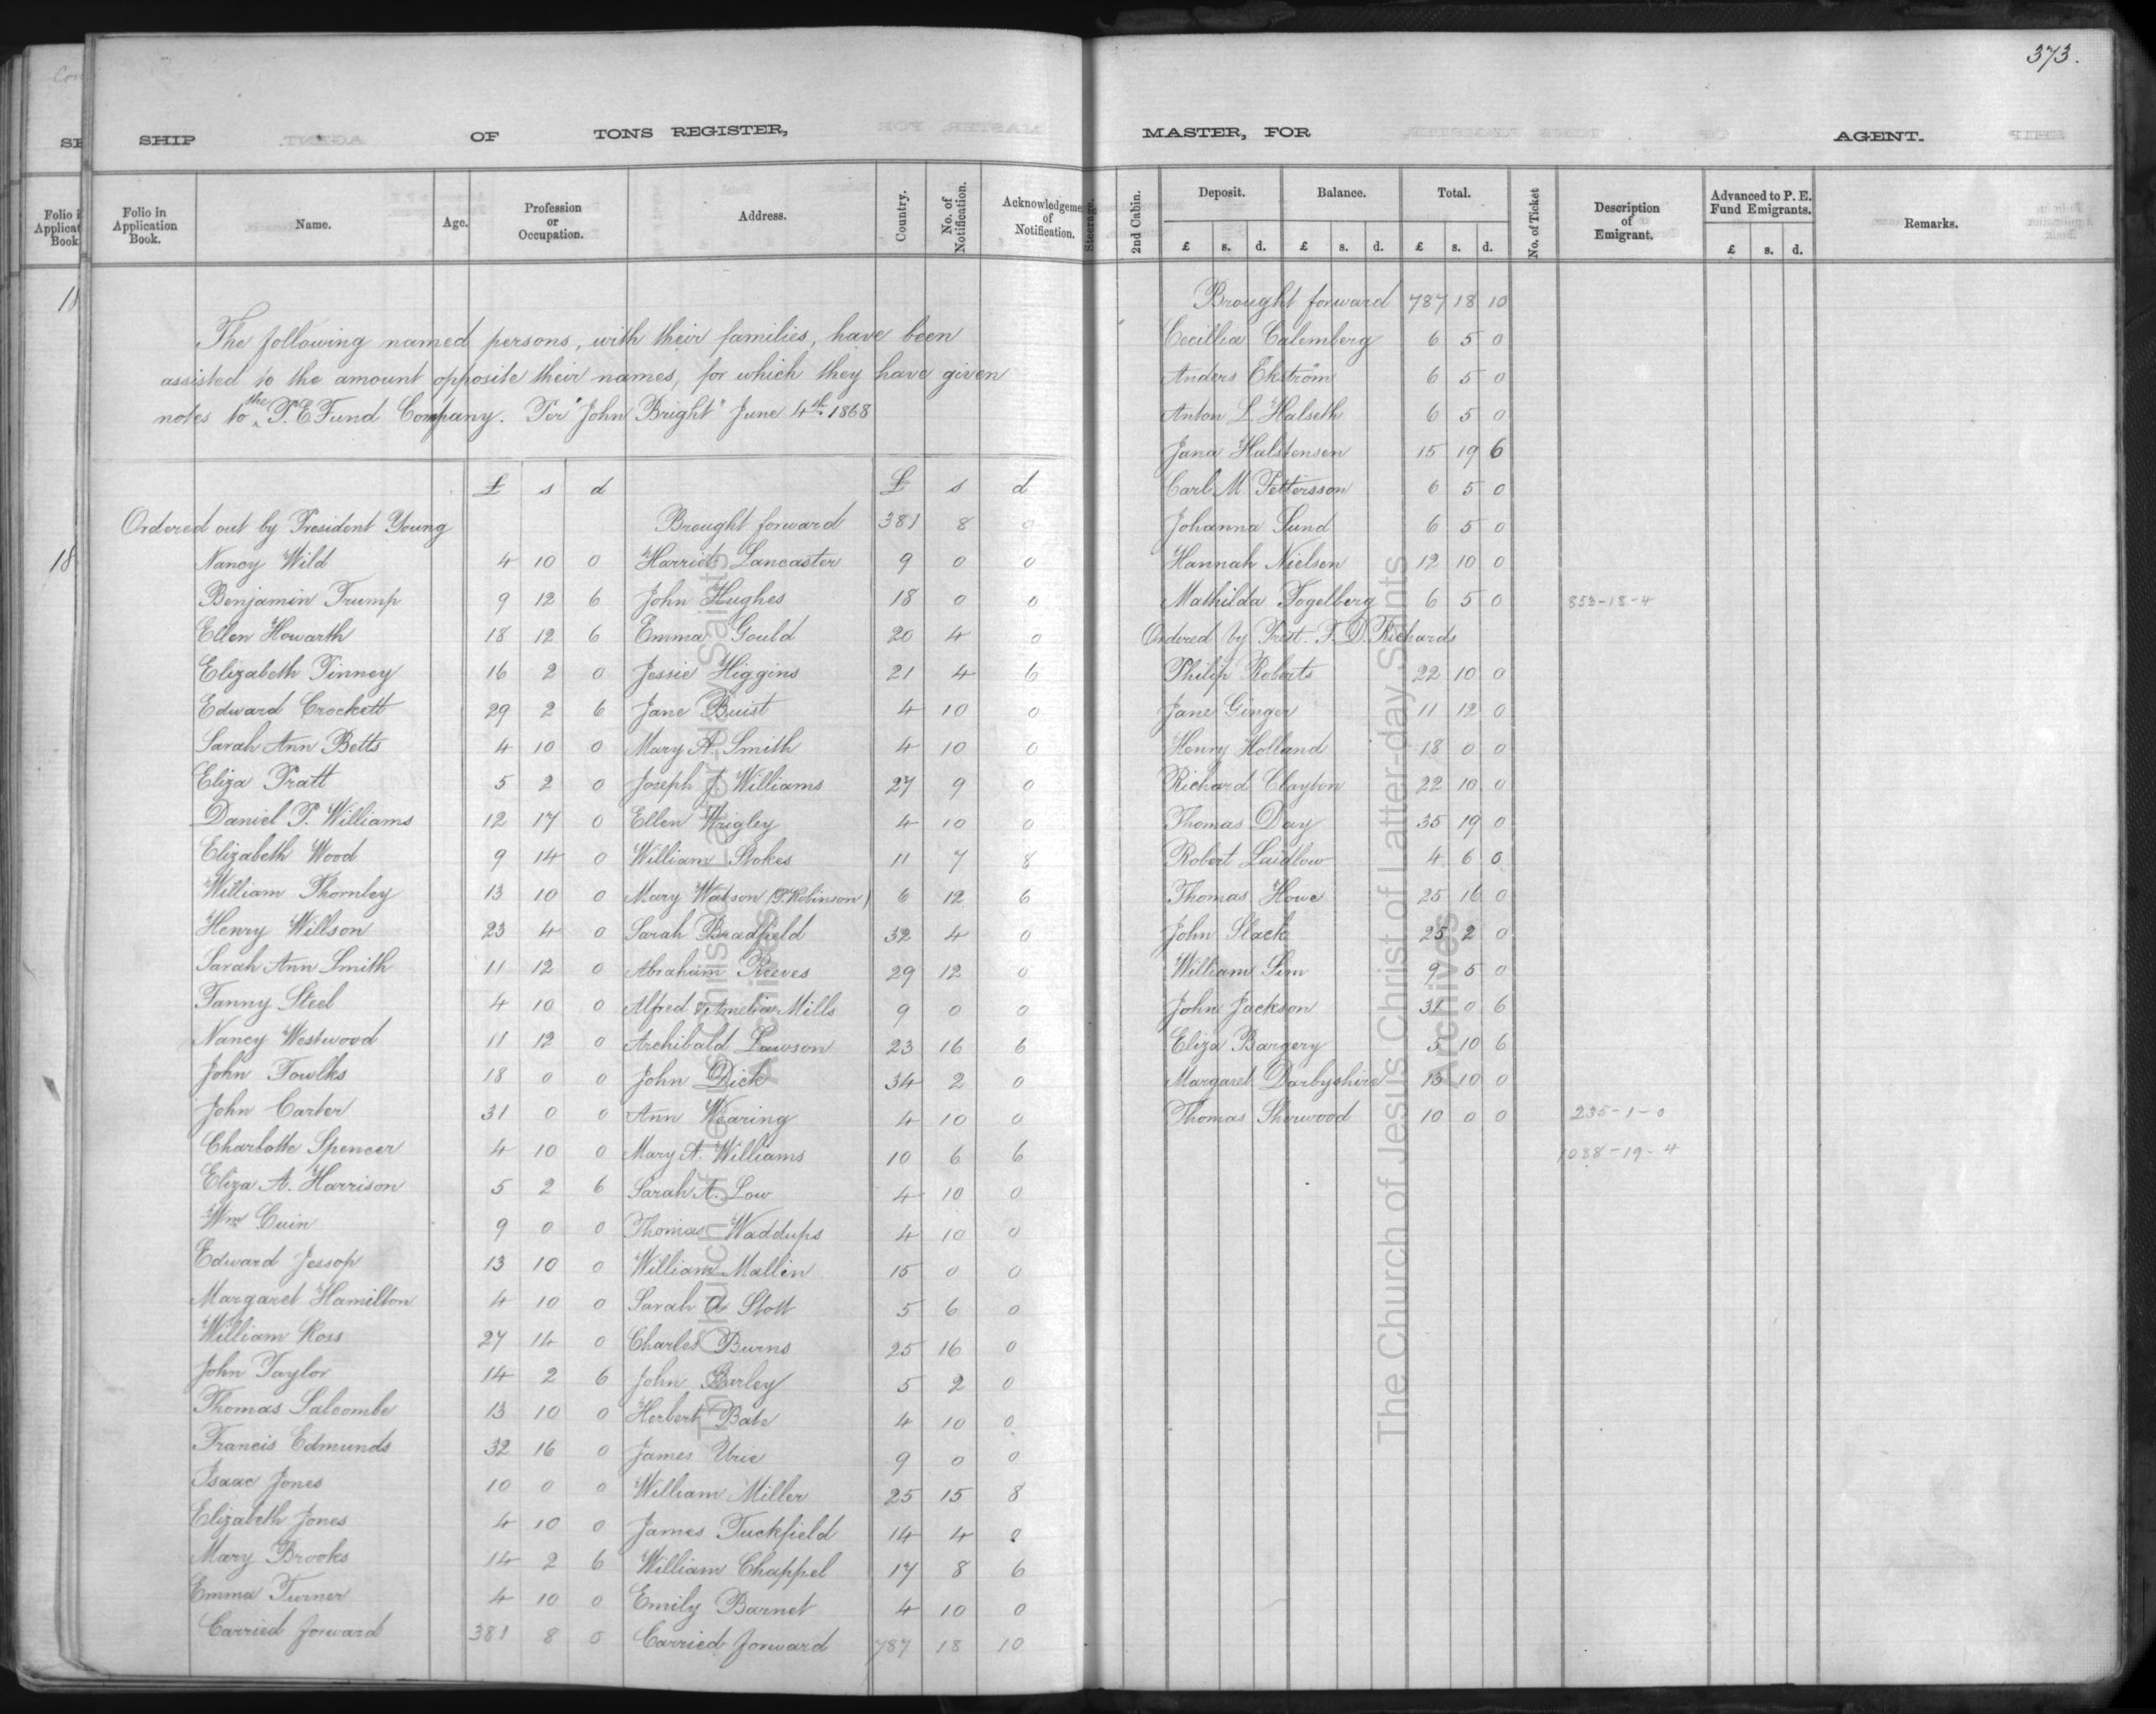 373.
SHIP OF TONS REGISTER, MASTER, FOR AGENT.
Folio in Application Book. Name. Age. Profession or Occupation. Address. Country. No. of Notification. Acknowledgeme of Notification. Steerage. 2nd Cabin. Deposit. Balance. Total. No. of Ticket Description of Emigrant. Advanced to P. E. Fund Emigrants. Remarks.
£ s. d. £ s. d. £ s. d. £ s. d.
The following named persons, with their families, have been
assisted to the amount opposite their names, for which they have given
notes to the P. E Fund Company. Per "John Bright" June 4th 1868
£ s d
Ordered out by President Young
Nancy Wild 4 10 0
Benjamin Trump 9 12 6
Ellen Howarth 18 12 6
Elizabeth Pinney 16 2 0
Edward Crockett 29 2 6
Sarah Ann Betts 4 10 0
Eliza Pratt 5 2 0
Daniel P. Williams 12 17 0
Elizabeth Wood 9 14 0
William Thornley 13 10 0
Henry Willson 23 4 0
Sarah Ann Smith 11 12 0
Fanny Steel 4 10 0
Nancy Westwood 11 12 0
John Fowlks 18 0 0
John Carter 31 0 0
Charlotte Spencer 4 10 0
Eliza A. Harrison 5 2 6
Wm Cuin 9 0 0
Edward Jessop 13 10 0
Margaret Hamilton 4 10 0
William Ross 27 14 0
John Taylor 14 2 6
Thomas Salcombe 13 10 0
Francis Edmunds 32 16 0
Isaac Jones 10 0 0
Elizabeth Jones 4 10 0
Mary Brooks 14 2 6
Emma Turner 4 10 0
Carried forward 381 8 0
£ s d
Brought forward 381 8 0
Harriet Lancaster 9 0 0
John Hughes 18 0 0
Emma Gould 20 4 0
Jessie Higgins 21 4 6
Jane Buist 4 10 0
Mary A. Smith 4 10 0
Joseph J. Williams 27 9 0
Ellen Wrigley 4 10 0
William Stokes 11 7 8
Mary Watson (P. Robinson) 6 12 6
Sarah Bradfield 32 4 0
Abraham Reeves 29 12 0
Alfred & Amelia Mills 9 0 0
Archibald Lawson 23 16 6
John Dick 34 2 0
Ann Wearing 4 10 0
Mary A. Williams 10 6 6
Sarah A. Low 4 10 0
Thomas Waddups 4 10 0
William Mallin 15 0 0
Sarah A Stott 5 6 0
Charles Burns 25 16 0
John Barley 5 2 0
Herbert Bate 4 10 0
James Urie 9 0 0
William Miller 25 15 8
James Tuckfield 14 4 0
William Chappel 17 8 6
Emily Barnet 4 10 0
Carried forward 787 18 10
Brought forward 787 18 10
Cecillia Calemberg 6 5 0
Anders Ekström 6 5 0
Anton L Halseth 6 5 0
Jana Halstensen 15 19 6
Carl M. Pettersson 6 5 0
Johanna Lund 6 5 0
Hannah Nielsen 12 10 0
Mathilda Fogelberg 6 5 0 853-18-4
Ordered by Prest. F. D. Richards
Philip Roberts 22 10 0
Jane Ginger 11 12 0
Henry Holland 18 0 0
Richard Clayton 22 10 0
Thomas Day 35 19 0
Robert Laidlow 4 6 0
Thomas Howe 25 16 0
John Slack 25 2 0
William Sim 9 5 0
John Jackson 31 0 6
Eliza Bargery 5 10 6
Margaret Darbyshire 13 10 0
Thomas Sherwood 10 0 0 235-1-0
1088-19-4
The Church of Jesus Christ of Latter-day Saints
Archives